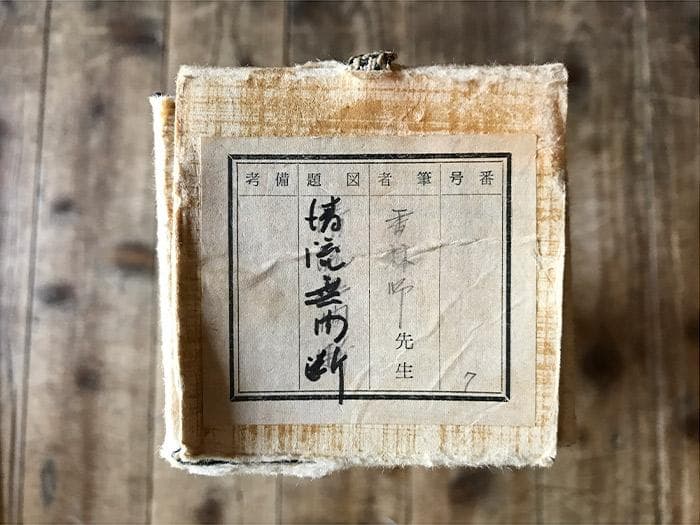 番号 筆者 図題 備考
7
林師先生
清流無間断